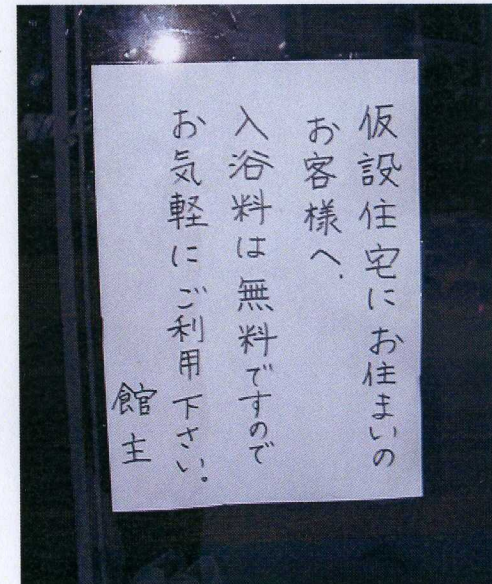 仮設住宅にお住まいの
お客様へ、
入浴料は無料ですので
お気軽にご利用下さい。
館主